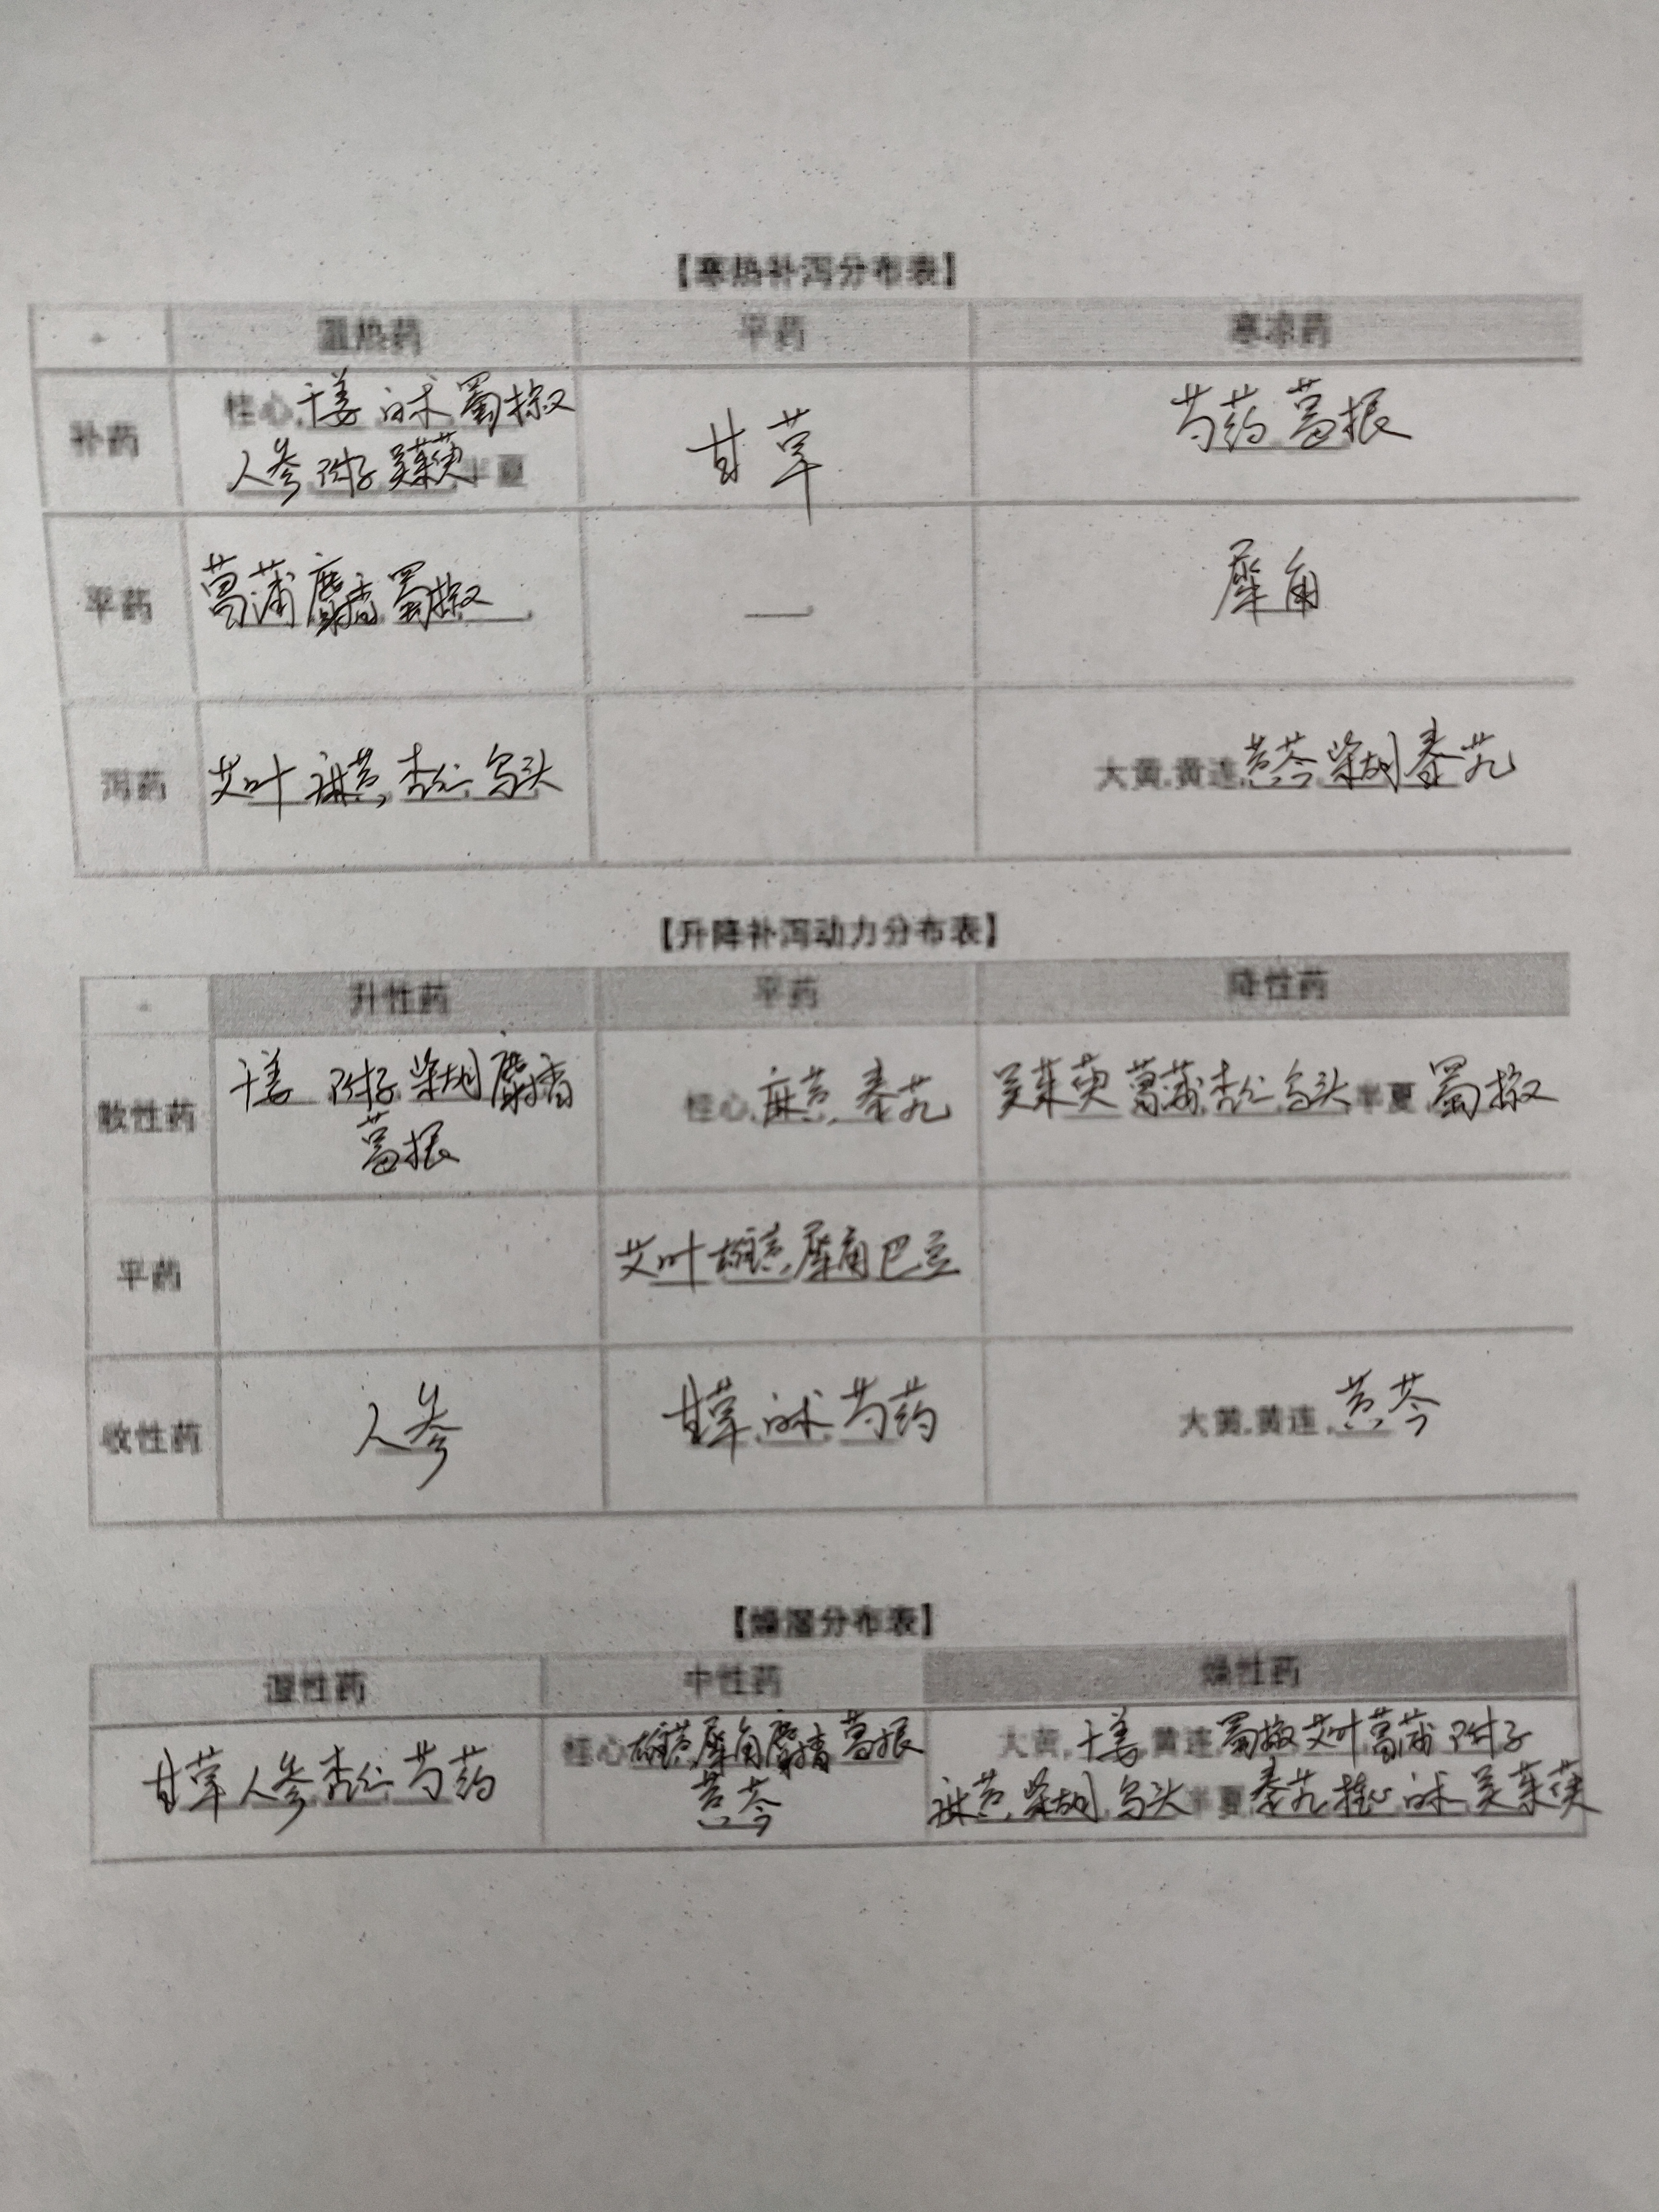 【寒热补泻分布表】
温热药 平药 寒凉药
补药 桂心,干姜 白术 蜀椒 甘草 芍药 葛根
人参 附子 吴茱萸 半夏
平药 菖蒲 麝香 蜀椒 — 犀角
泻药 艾叶 麻黄,杏仁 乌头 大黄,黄连,黄芩 柴胡 秦艽
【升降补泻动力分布表】
升性药 平药 降性药
散性药 干姜 附子 柴胡 麝香 桂心,麻黄,秦艽 吴茱萸 菖蒲,杏仁,乌头,半夏,蜀椒
葛根
平药 艾叶 雄黄,犀角 巴豆
收性药 人参 甘草,白术,芍药 大黄,黄连,黄芩
【燥湿分布表】
湿性药 中性药 燥性药
甘草 人参 杏仁 芍药 桂心 雄黄,犀角 麝香 葛根 大黄,干姜,黄连,蜀椒 艾叶 菖蒲 附子
黄芩 麻黄,柴胡,乌头 半夏,秦艽 桂心 白术 吴茱萸